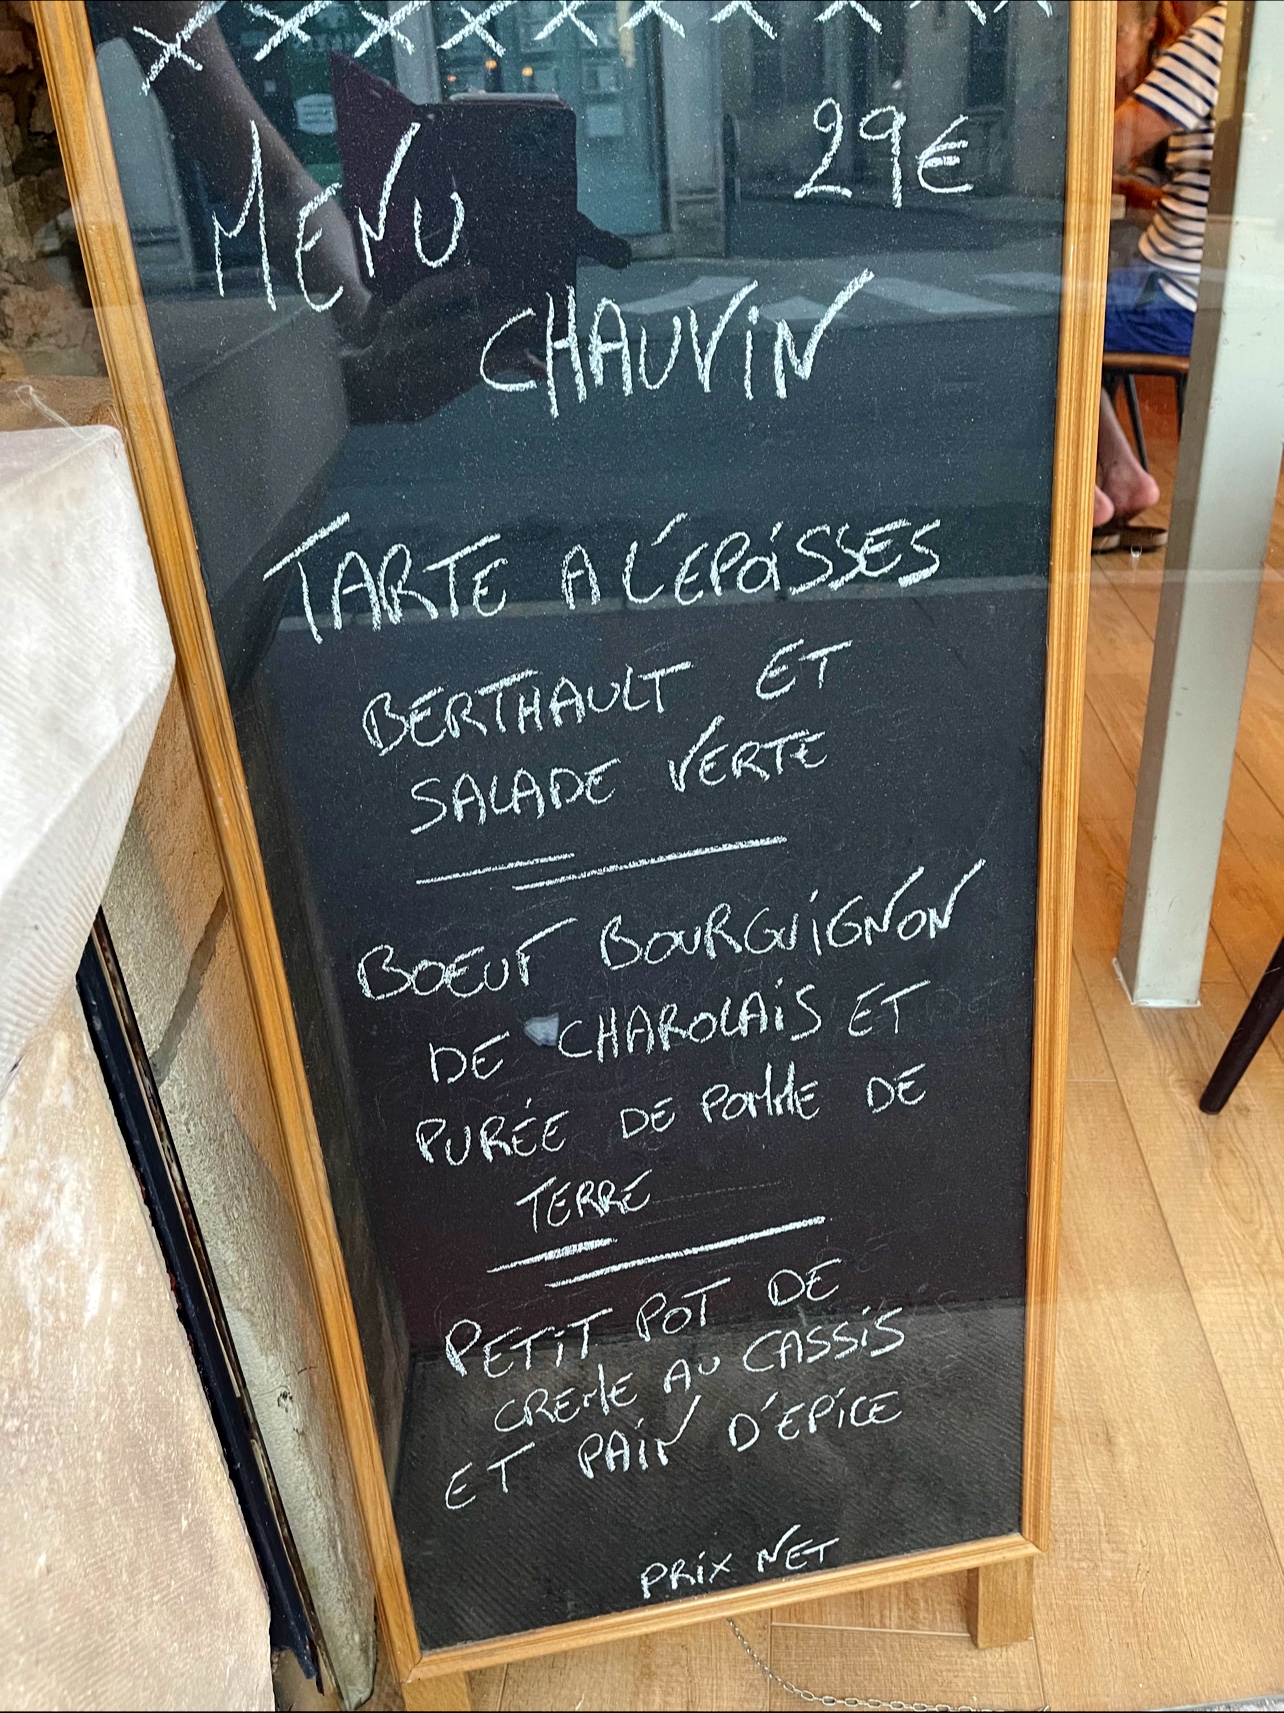 MENU 29€
CHAUVIN
TARTE A L'EPOISSES
BERTHAULT ET
SALADE VERTE
BOEUF BOURGUIGNON
DE CHAROLAIS ET
PURÉE DE POMME DE
TERRE
PETIT POT DE
CREME AU CASSIS
ET PAIN D'EPICE
PRIX NET